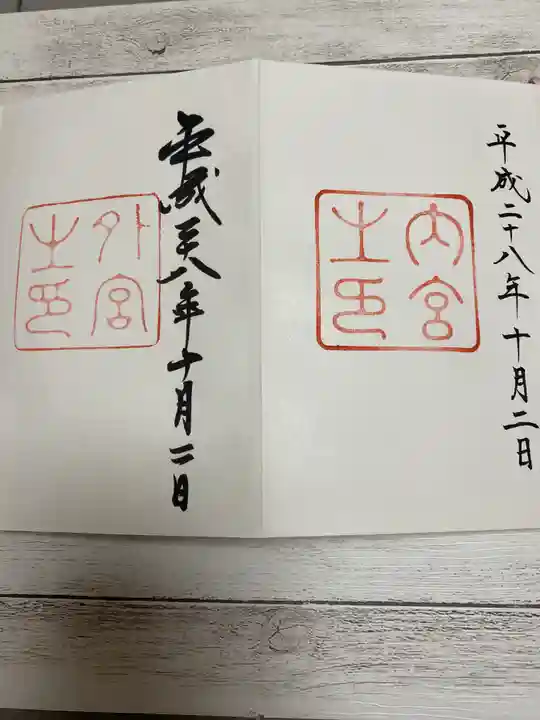 平成二十八年十月二日
内宮
之印
平成二十八年十月二日
外宮
之印